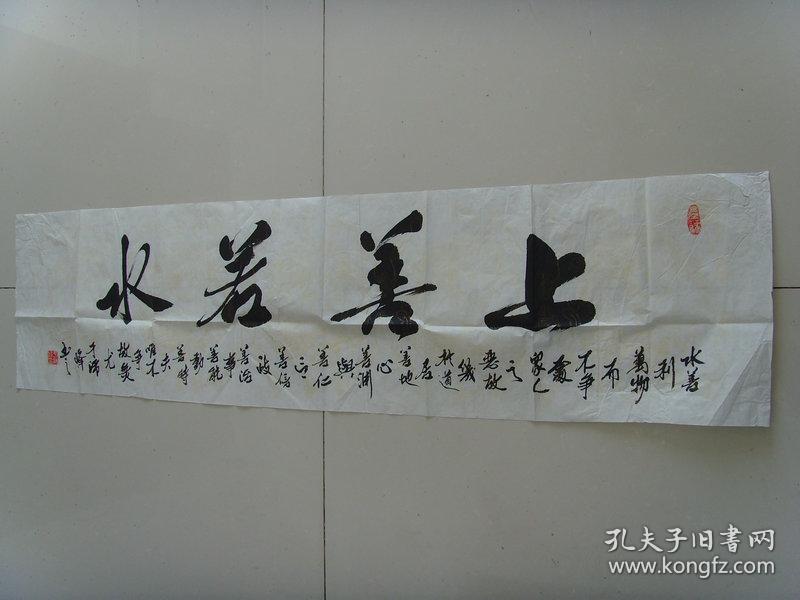 上善若水
水善
利
萬物
而
不爭
處
眾人
之
惡故
幾
於道
居
善地
心
善淵
與
善仁
言
善信
政
善治
事
善能
動
善時
夫
唯不
爭
故無
尤
書
孔夫子旧书网
www.kongfz.com